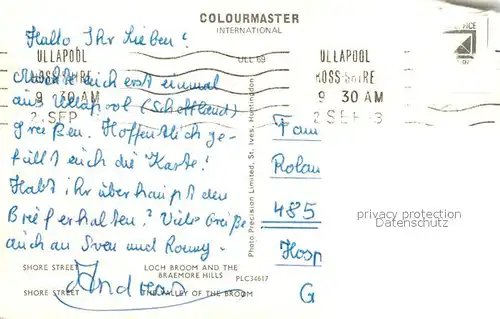 COLOURMASTER
INTERNATIONAL
Hallo Ihr Lieben!
ULLAPOOL
ROSS-SHIRE
9 30 AM
2 SEP
ULL 69
ULLAPOOL
ROSS-SHIRE
9 30 AM
2 SEP
Möchte euch erst einmal
aus Ullapool (Schottland)
grüßen. Hoffentlich ge-
fällt euch die Karte!
Habt ihr überhaupt den
Brief erhalten? Viele Grüße
auch an Sven und Ronny.
Andreas
Photo Precision Limited, St. Ives, Huntingdon
Fam
Rolan
485
Hosp
G
privacy protection
Datenschutz
SHORE STREET
LOCH BROOM AND THE
BRAEMORE HILLS
PLC34617
SHORE STREET
THE VALLEY OF THE BROOM